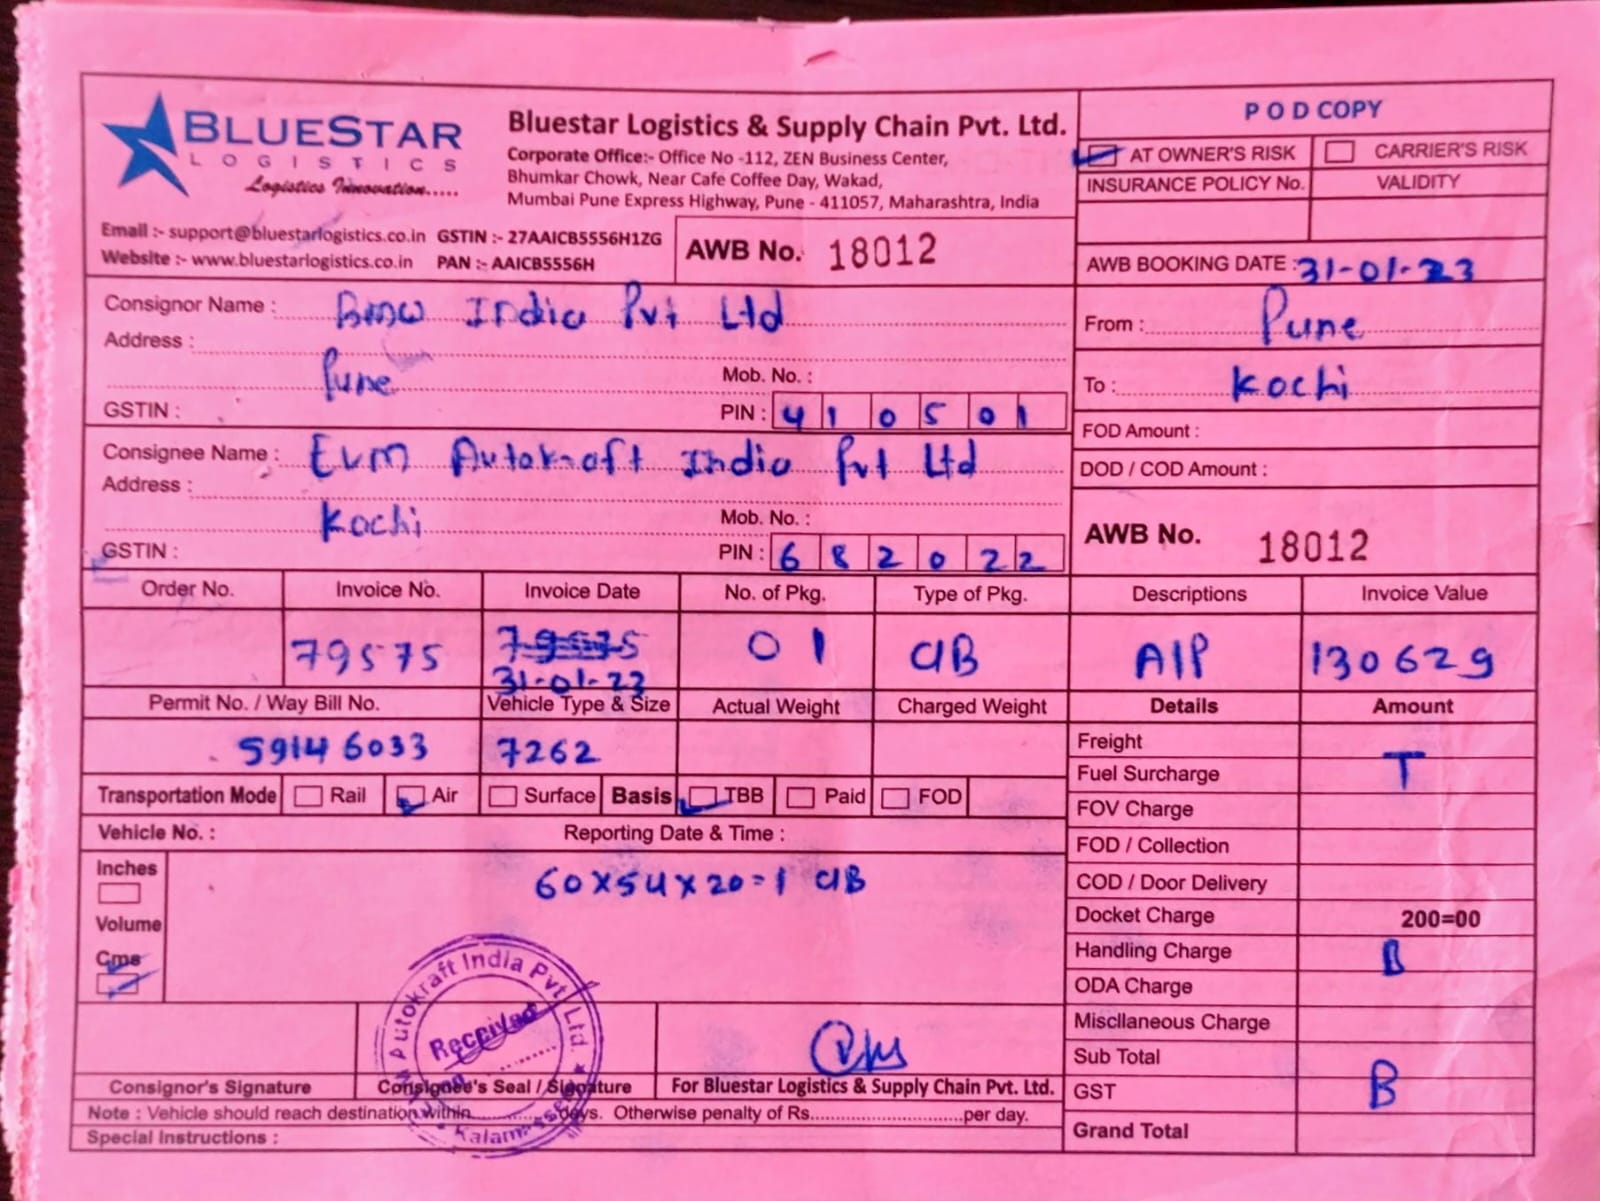 BLUESTAR
LOGISTICS
Logistics Innovation.....
Bluestar Logistics & Supply Chain Pvt. Ltd.
Corporate Office:- Office No -112, ZEN Business Center,
Bhumkar Chowk, Near Cafe Coffee Day, Wakad,
Mumbai Pune Express Highway, Pune - 411057, Maharashtra, India
Email :- support@bluestarlogistics.co.in GSTIN :- 27AAICB5556H1ZG
Website :- www.bluestarlogistics.co.in PAN :- AAICB5556H
AWB No. 18012
P O D COPY
AT OWNER'S RISK CARRIER'S RISK
INSURANCE POLICY No. VALIDITY
AWB BOOKING DATE : 31-01-23
From : Pune
To : Kochi
FOD Amount :
DOD / COD Amount :
AWB No. 18012
Consignor Name : BMW India Pvt Ltd
Address :
Pune Mob. No. :
GSTIN : PIN : 410501
Consignee Name : EVM Autokraft India Pvt Ltd
Address :
Kochi Mob. No. :
GSTIN : PIN : 682022
Order No. Invoice No. Invoice Date No. of Pkg. Type of Pkg. Descriptions Invoice Value
79575 79575 01 C/B A/P 130629
31-01-23
Permit No. / Way Bill No. Vehicle Type & Size Actual Weight Charged Weight Details Amount
59146033 7262
Transportation Mode Rail Air Surface Basis TBB Paid FOD
Vehicle No. : Reporting Date & Time :
Inches
Volume
Cms
60x54x20=1 C/B
Freight
Fuel Surcharge T
FOV Charge
FOD / Collection
COD / Door Delivery
Docket Charge 200=00
Handling Charge B
ODA Charge
Miscllaneous Charge
Sub Total
GST B
Grand Total
Autokraft India Pvt. Ltd.
Received
Consignor's Signature Consignee's Seal / Signature For Bluestar Logistics & Supply Chain Pvt. Ltd.
Note : Vehicle should reach destination within..........days. Otherwise penalty of Rs..........................per day.
Special Instructions :